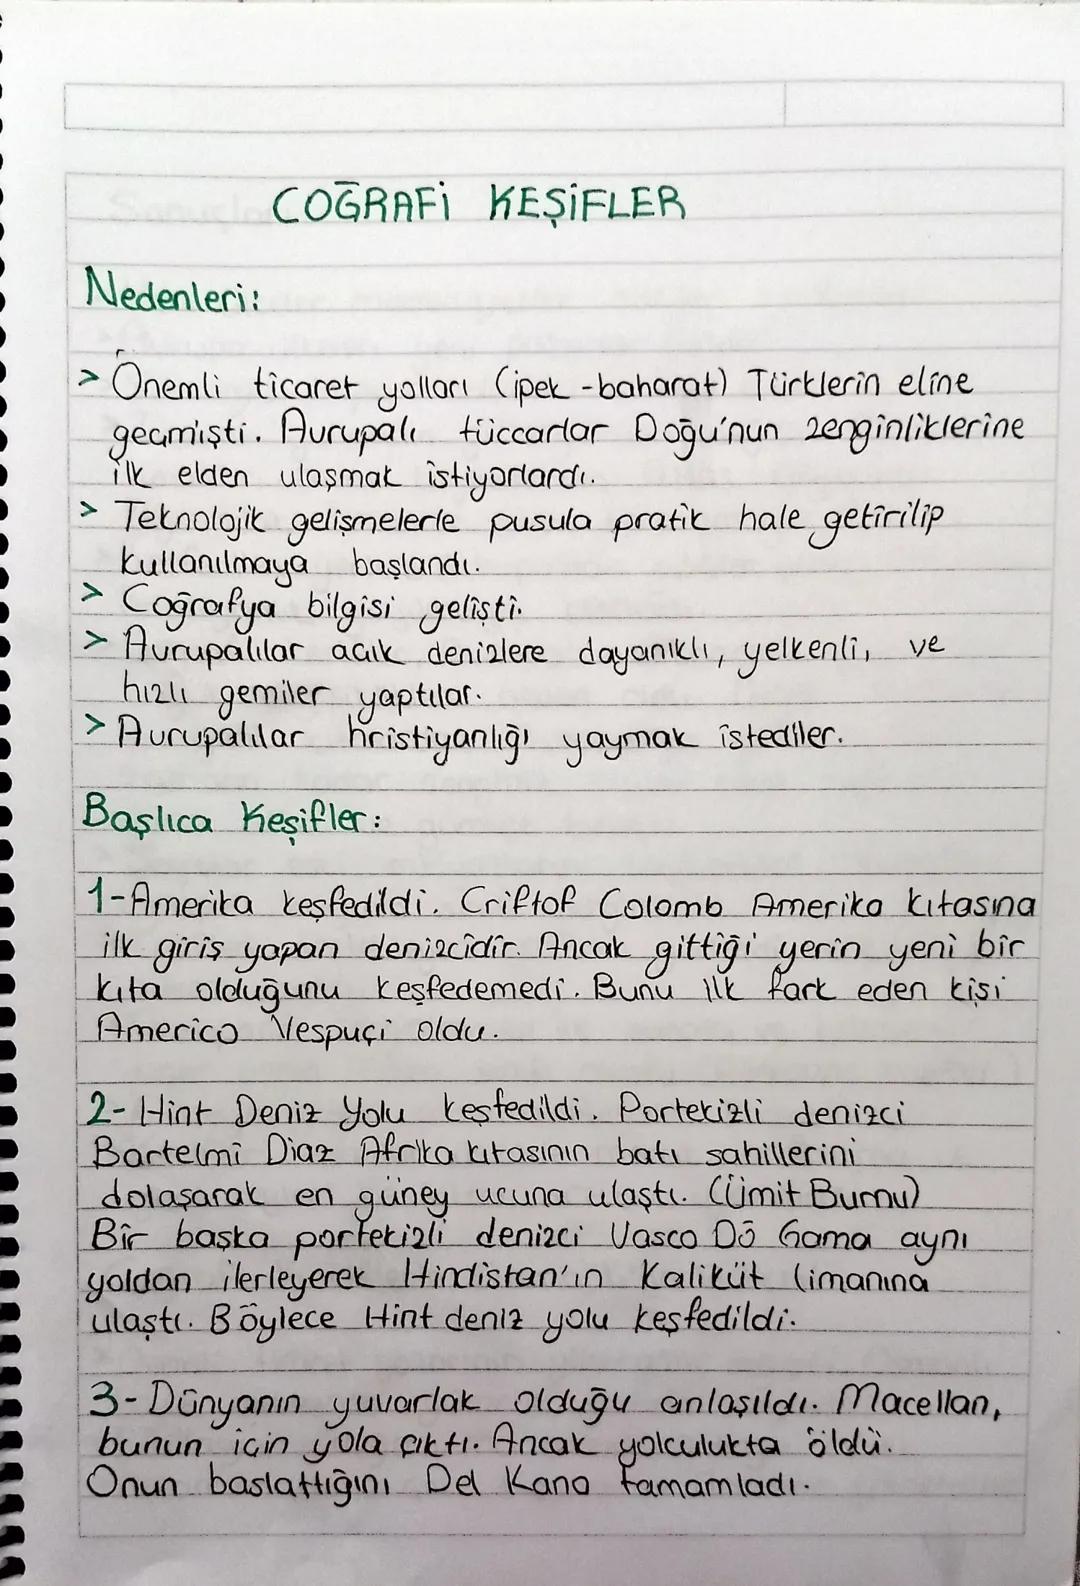 COĞRAFİ KEŞİFLER
Nedenleri:
> Önemli ticaret yolları (ipek -baharat) Türklerin eline
geçmişti. Avrupalı tüccarlar Doğu'nun zenginliklerine
ilk elden ulaşmak istiyorlardı.
> Teknolojik gelişmelerle pusula pratik hale getirilip
kullanılmaya başlandı.
> Coğrafya bilgisi gelişti.
> Avrupalılar açık denizlere dayanıklı, yelkenli, ve
hızlı gemiler yaptılar.
> Avrupalılar hristiyanlığı yaymak istediler.
Başlıca Keşifler:
1-Amerika keşfedildi. Criftof Colomb Amerika kıtasına
ilk giriş yapan denizcidir. Ancak gittiği yerin yeni bir
kıta olduğunu keşfedemedi. Bunu ilk fark eden kişi
Americo Vespuçi oldu.
2- Hint Deniz Yolu keşfedildi. Portekizli denizci
Bartelmi Diaz Afrika kıtasının batı sahillerini
dolaşarak en güney ucuna ulaştı. (Ümit Burnu)
Bir başka portekizli denizci Vasco Dö Gama aynı
yoldan ilerleyerek Hindistan'ın Kaliküt limanına
ulaştı. Böylece Hint deniz yolu keşfedildi.
3- Dünyanın yuvarlak olduğu anlaşıldı. Macellan,
bunun için yola çıktı. Ancak yolculukta öldü.
Onun baslattığını Del Kano tamamladı.